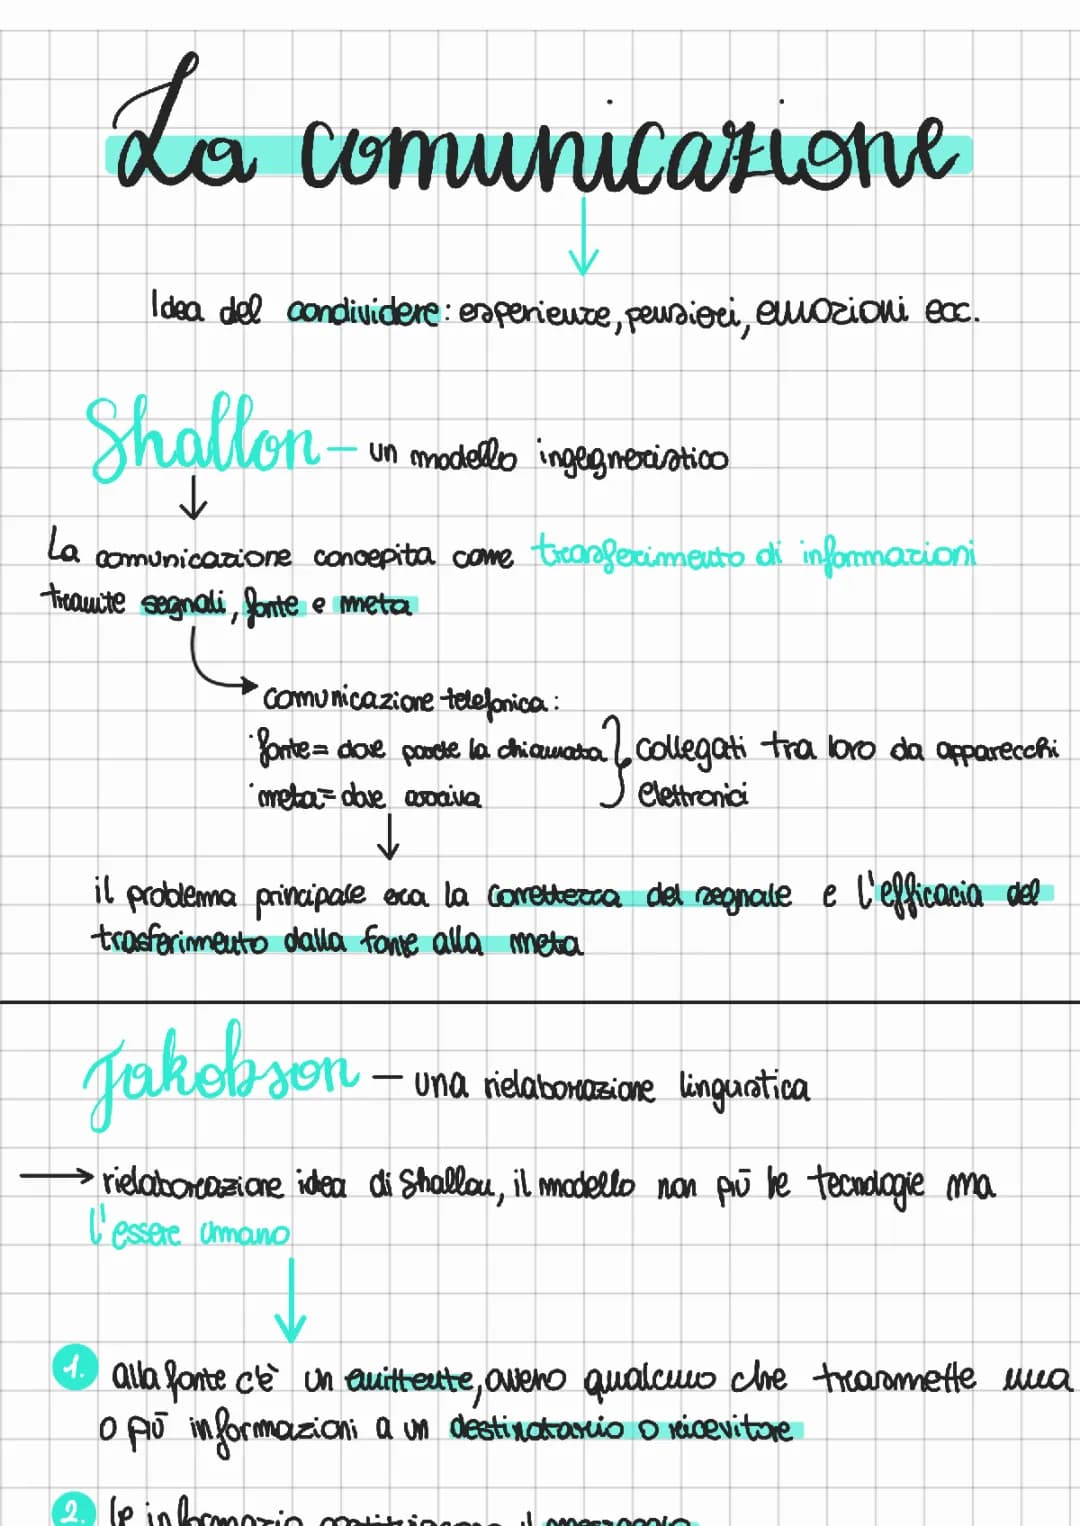 La comunicazione
Idea del condividere: esperienze, pensieri, emozioni ecc.
Shallon – un modello ingegneristico
La comunicazione concepita come trasferimento di informazioni
tramite segnali, fonte e meta
comunicazione telefonica:
·fonte= dove parte la chiamata } collegati tra loro da apparecchi
·meta= dove arriva elettronici
il problema principale era la correttezza del segnale e l'efficacia del
trasferimento dalla fonte alla meta
Jakobson – una rielaborazione linguistica
→ rielaborazione idea di Shallon, il modello non più le tecnologie ma
l'essere umano
1. alla fonte c'è un emittente, ovvero qualcuno che trasmette una
o più informazioni a un destinatario o ricevitore
2. le informazio costituiscono il messaggio